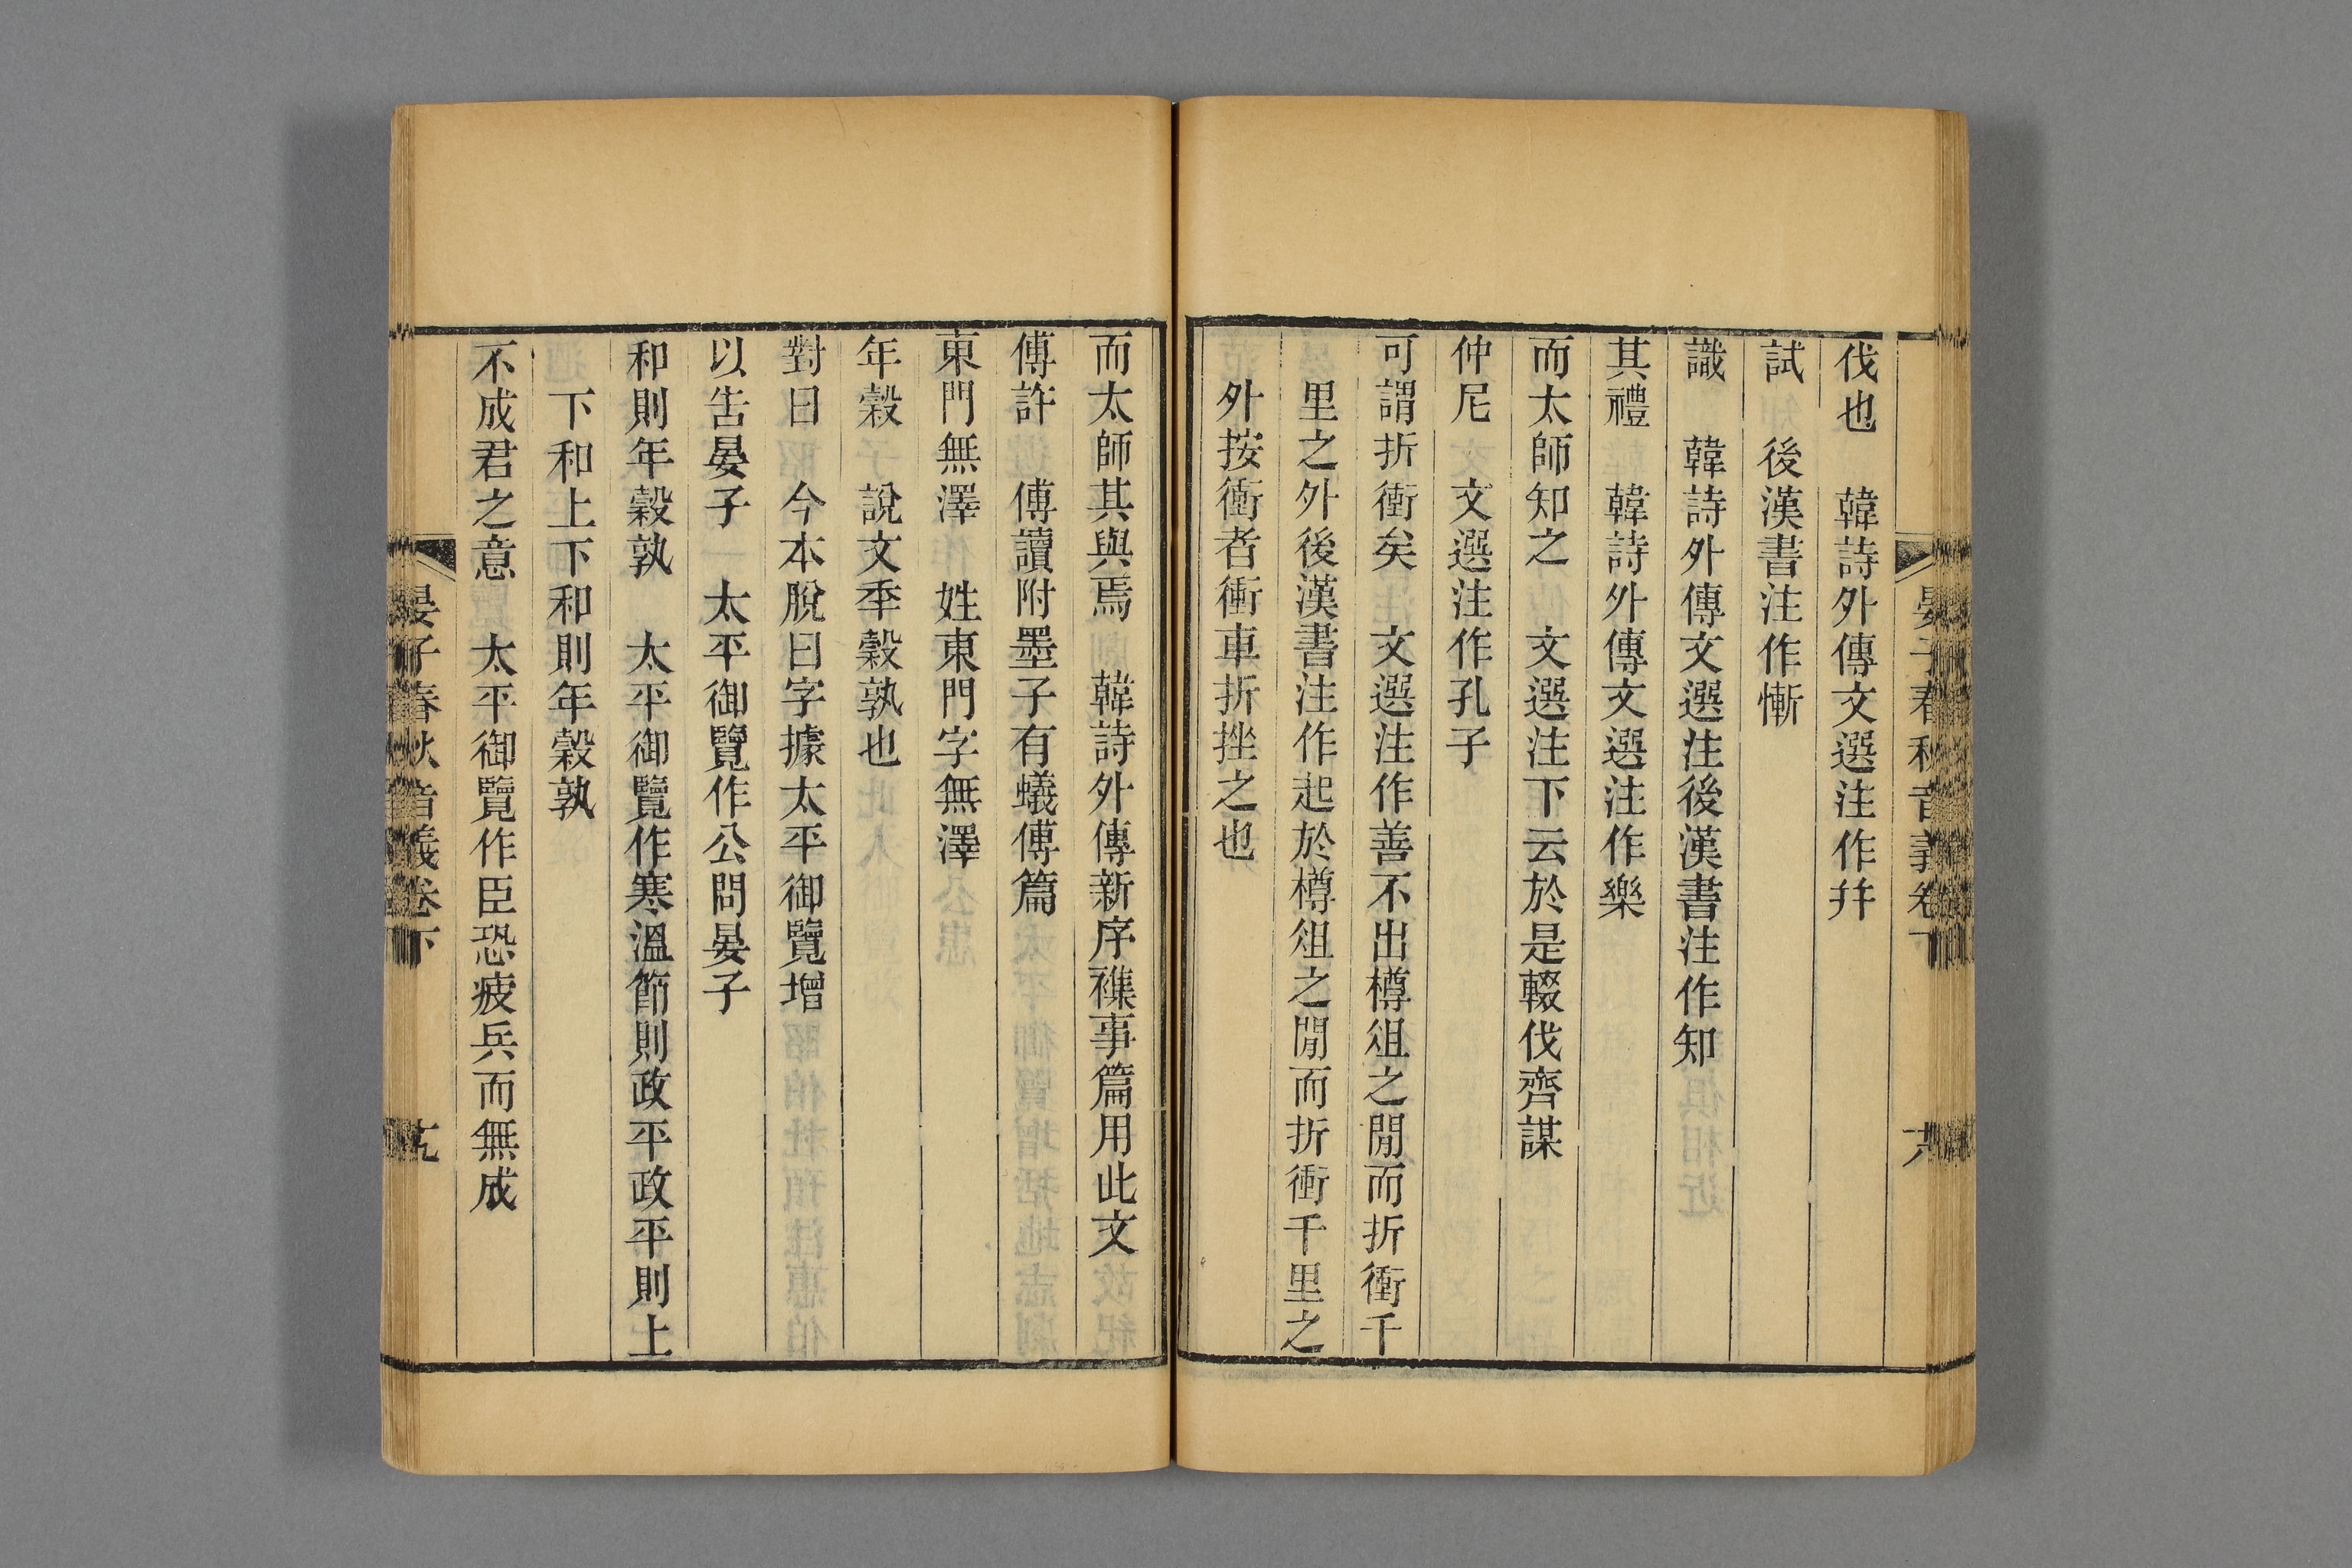 伐也　韓詩外傳文選注作幷
試　後漢書注作慚
識　韓詩外傳文選注後漢書注作知
其禮　韓詩外傳文選注作樂
而太師知之　文選注下云於是輟伐齊謀
仲尼　文選注作孔子
可謂折衝矣　文選注作善不出樽俎之閒而折衝千
里之外後漢書注作起於樽俎之閒而折衝千里之
外按衝者衝車折挫之也
而太師其與焉　韓詩外傳新序襍事篇用此文
傅許　傅讀附墨子有蟻傅篇
東門無澤　姓東門字無澤
年穀　說文秊穀孰也
對曰　今本脫曰字據太平御覽增
以告晏子　太平御覽作公問晏子
和則年穀孰　太平御覽作寒溫節則政平政平則上
下和上下和則年穀孰
不成君之意　太平御覽作臣恐疲兵而無成
晏子春秋音義卷下